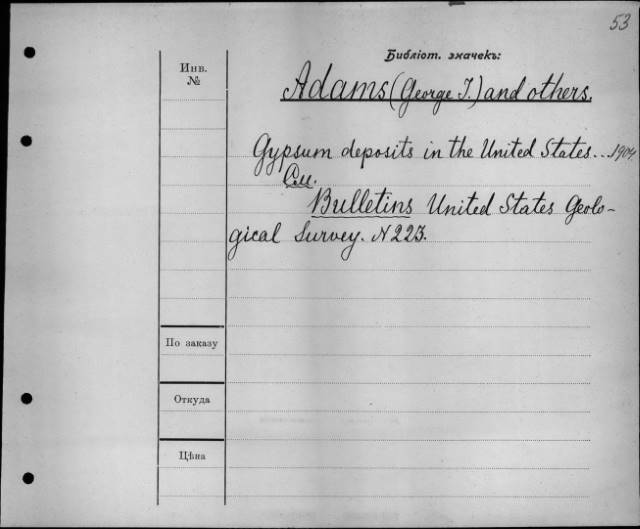 53
Библіот. значекъ:
Инв.
№
Adams (George I.) and others.
Gypsum deposits in the United States... 1904
См.
Bulletins United States Geolo-
gical Survey. N 223.
По заказу
Откуда
Цѣна